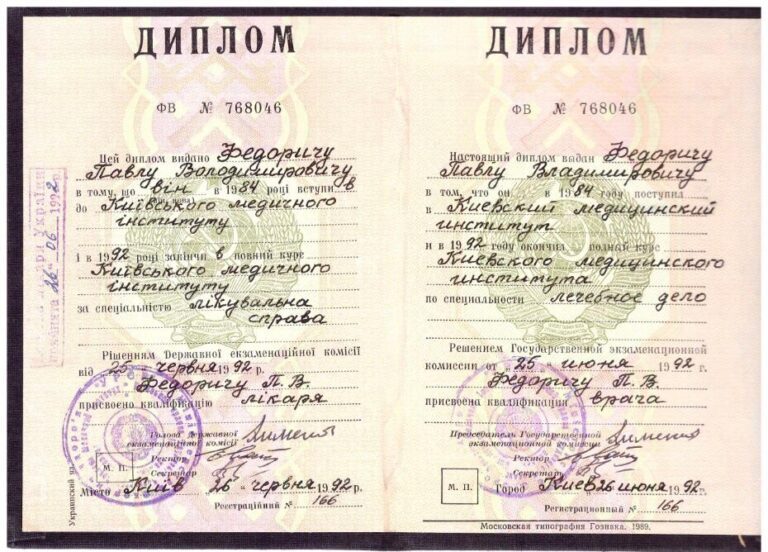 ДИПЛОМ
ФВ № 768046
Цей диплом видано Федоричу
Павлу Володимировичу
в тому, що він в 1984 році вступив
до Київського медичного
інституту
і в 1992 році закінчив повний курс
Київського медичного
інституту
за спеціальністю лікувальна
справа
Рішенням Державної екзаменаційної комісії
від 25 червня 1992 г.
Федоричу П. В.
присвоєно кваліфікацію лікаря
Голова Державної
екзаменаційної комісії
Ректор
Секретар
М. П.
Місто Київ 26 червня 1992 р.
Реєстраційний № 166
Украинский яз.
26 06 1992 р.
ДИПЛОМ
ФВ № 768046
Настоящий диплом выдан Федоричу
Павлу Владимировичу
в том, что он в 1984 году поступил
в Киевский медицинский
институт
и в 1992 году окончил полный курс
Киевского медицинского
института
по специальности лечебное дело
Решением Государственной экзаменационной
комиссии от 25 июня 1992 г.
Федоричу П. В.
присвоена квалификация врача
Председатель Государственной
экзаменационной комиссии
Ректор
Секретарь
М. П.
Город Киев 26 июня 1992 г.
Регистрационный № 166
Московская типография Гознака. 1989.